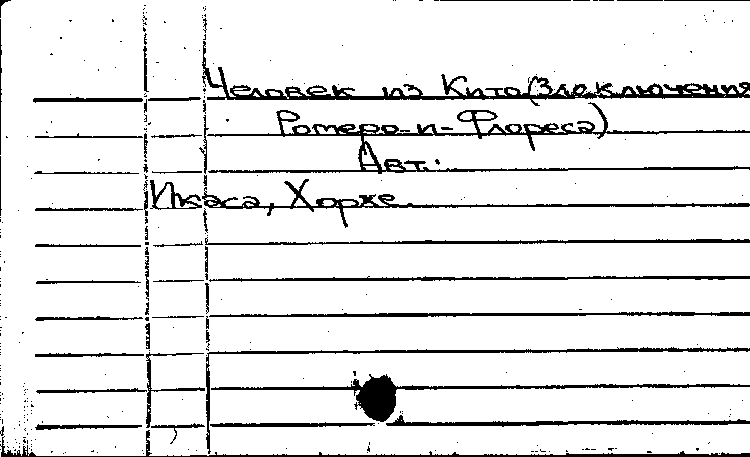 Человек из Кито(Злоключения
Ромеро-и-Флореса)
Авт.:
Икаса, Хорхе.